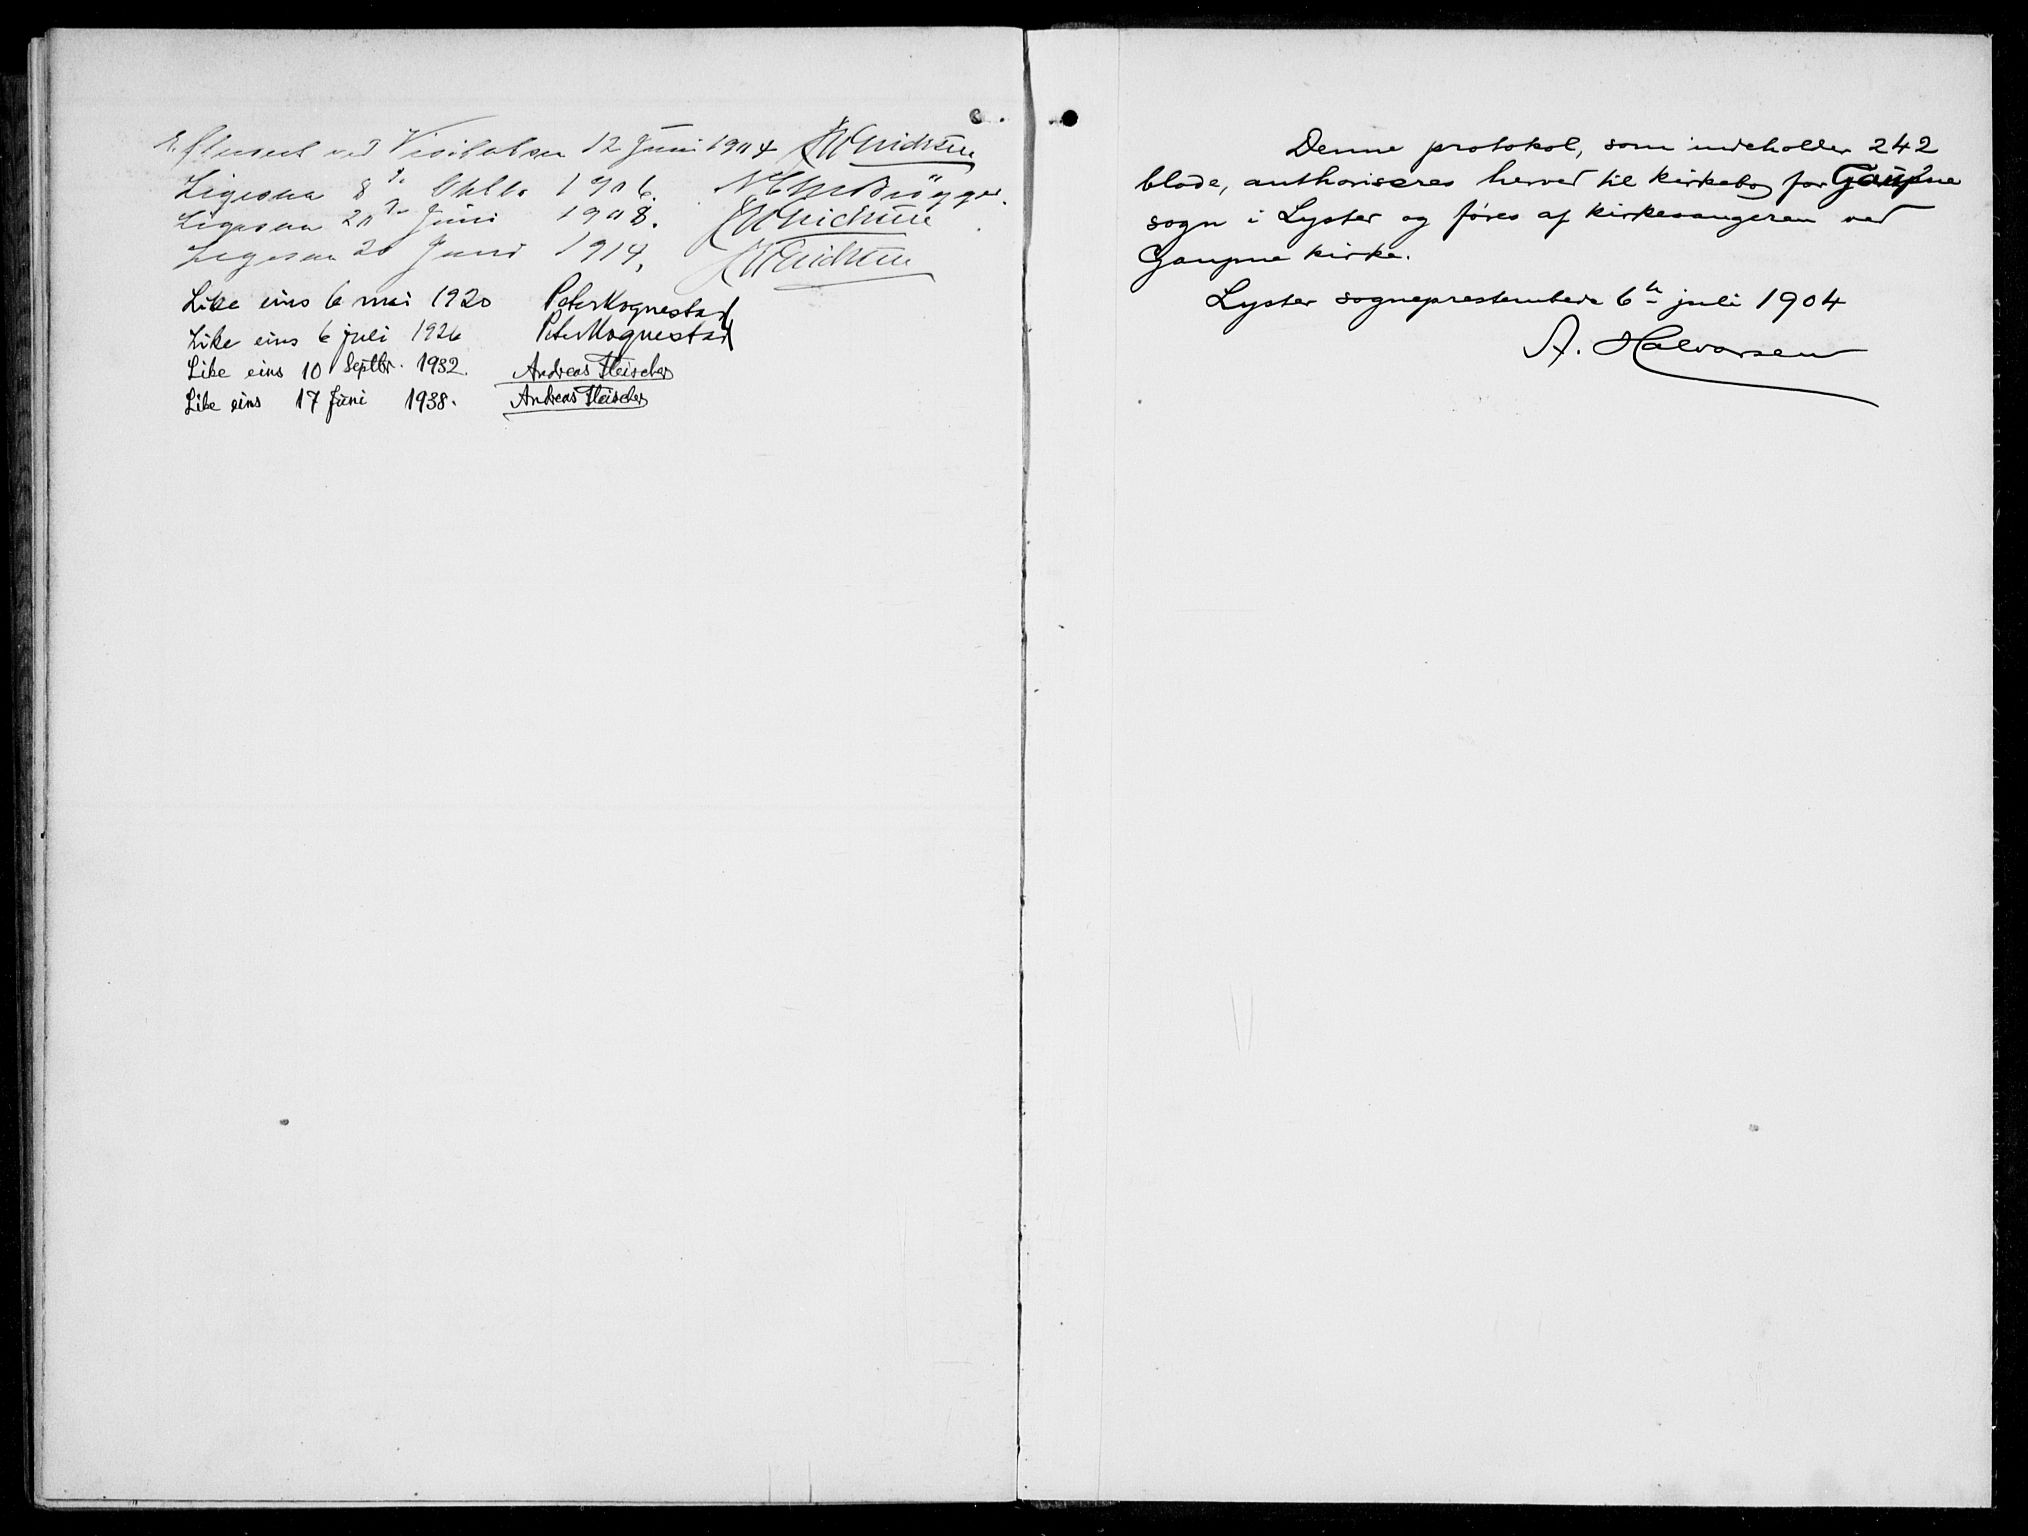 Efterseet ved Visitatsen 12 Juni 1904 JWErichsen
Ligesaa 8de Oktbr 1906.
Ligesaa 20de Juni 1908. JWErichsen
Ligesaa 20 Juni 1914. JWErichsen
Like eins 6 mai 1920 Peter Hognestad
Like eins 6 juli 1926 Peter Hognestad
Like eins 10 Septbr. 1932. Andreas Fleischer
Like eins 17 Juni 1938. Andreas Fleischer
Denne protokol, som indeholder 242
blade, authoriseres herved til kirkebog for Gaupne
sogn i Lyster og føres af kirkesangeren ved
Gaupne kirke.
Lyster sogneprestembede 6te juli 1904
A. Halvorsen